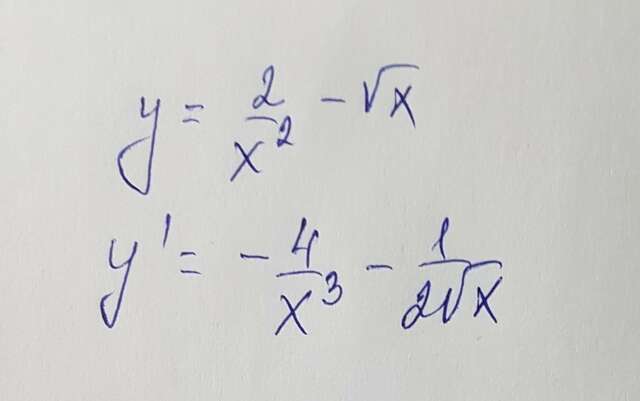 y = 2/x² - √x
y' = -4/x³ - 1/2√x